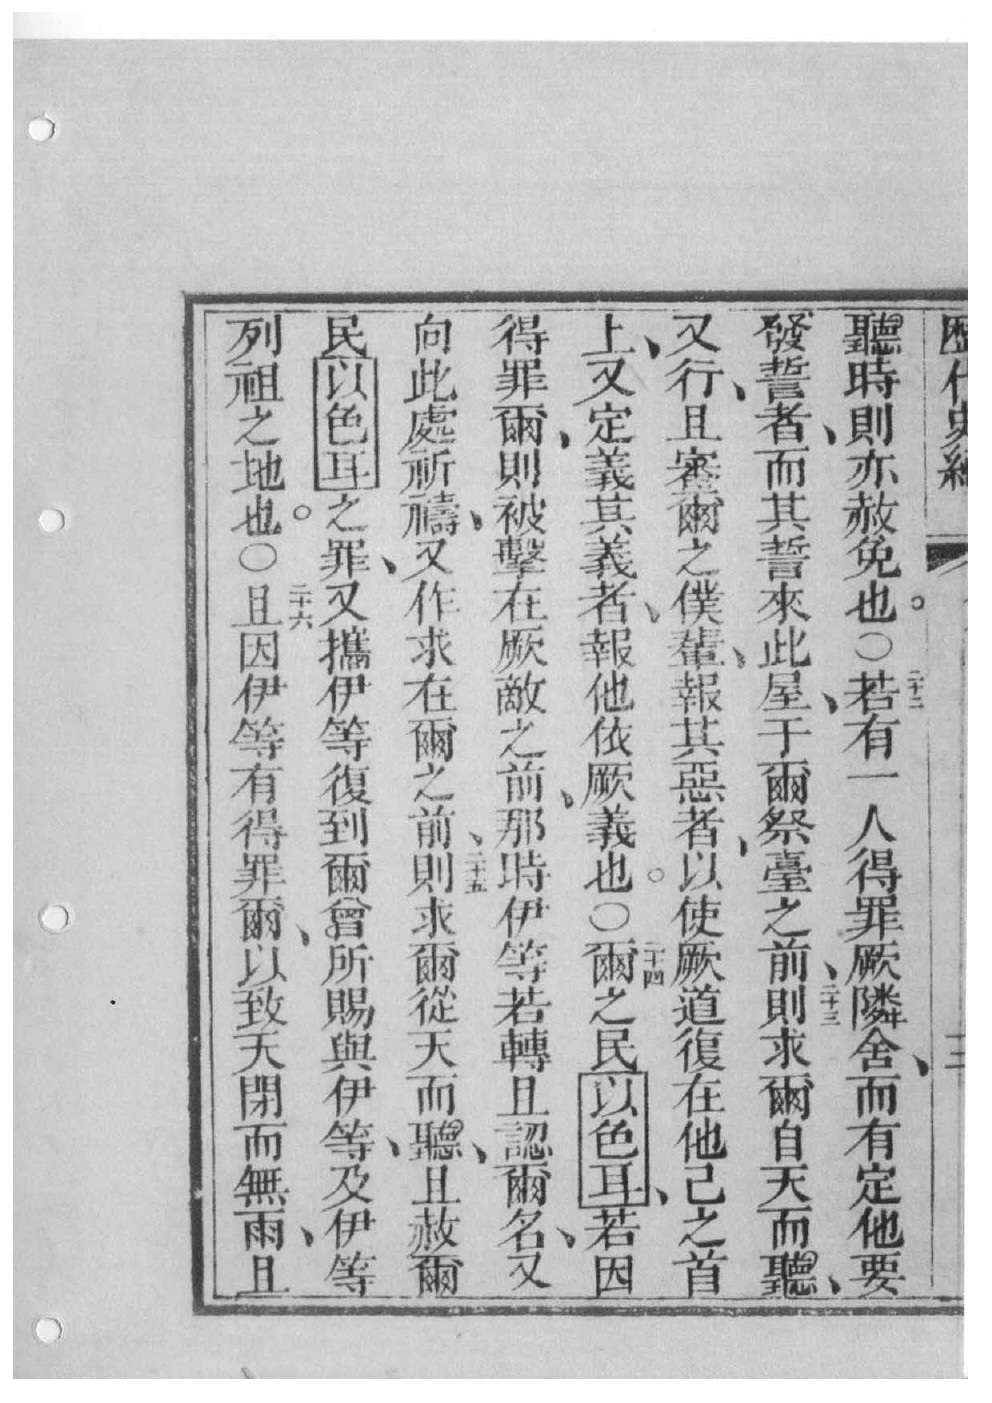 歷代史經 二
聽時則亦赦免也。○二十二若有一人得罪厥隣舍、而有定他要
發誓者、而其誓來此屋、于爾祭臺之前、二十三則求爾自天而聽、
又行、且審爾之僕輩、報其惡者、以使厥道復在他己之首
上、又定義其義者、報他依厥義也。○二十四爾之民以色耳、若因
得罪爾、則被擊在厥敵之前、那時伊等若轉且認爾名、又
向此處祈禱、又作求在爾之前、二十五則求爾從天而聽、且赦爾
民以色耳之罪、又攜伊等復到爾曾所賜與伊等、及伊等
列祖之地也。○二十六且因伊等有得罪爾、以致天閉而無雨、且